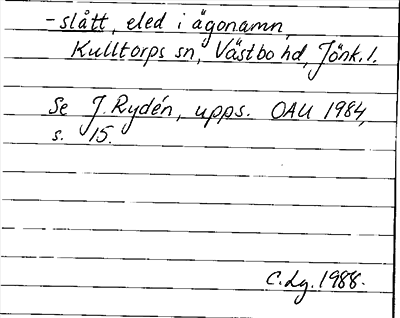 -slått, eled i ägonamn,
Kulltorps sn, Västbo hd, Jönk. l.
Se J. Rydén, upps. OAU 1984,
s. 15.
C. Lg. 1988.